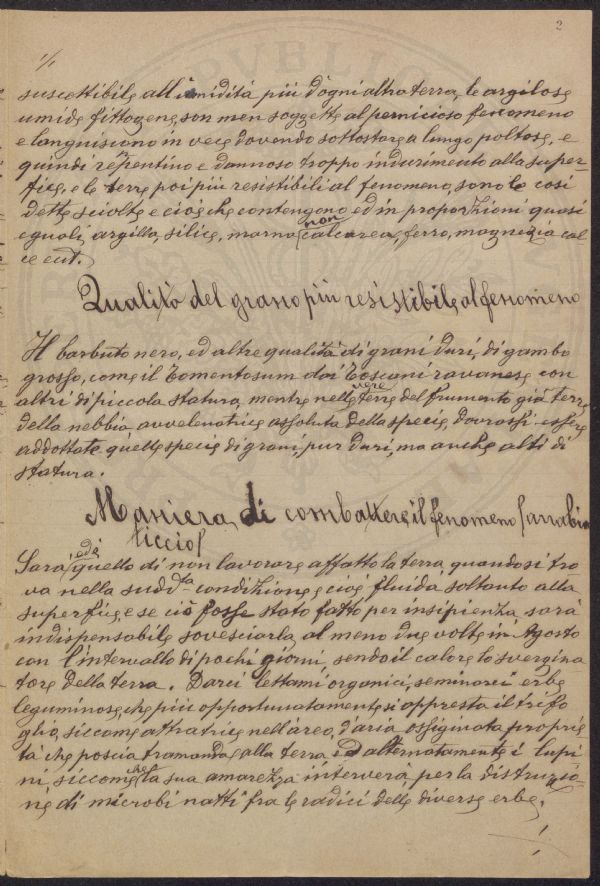 2
1/1
suscettibile all'umidità più d'ogni altra terra, le argilose
umide fittogene, son men soggette al pernicioso fenomeno
e languiscono in vece dovendo sottostare a lungo poltose, e
quindi repentino e dannoso troppo indurimento alla super-
ficie, e le terre poi più resistibili al fenomeno, sono le così
dette sciolte e cioè che contengono ed in proporzioni quasi
eguali, argilla, silice, marna non calcarea, ferro, magnezia cal
ce ecct.
Qualità del grano più resistibile al fenomeno
Il barbuto nero, ed altre qualità di grani duri, di gambo
grosso, come il Tomentosum dai Toscani ravanese con
altri di piccola statura, mentre nelle vere terre del frumento già terre
della nebbia avvelenatrice assoluta della specie, dovrassi essere
addottate quelle specie di grani, pur duri, ma anche alti di
statura.
Maniera di combattere il fenomeno sarrabu
ticcio
Sarà ed è quello di non lavorare affatto la terra quando si tro
va nella sudd.ta condizione, cioè fluida soltanto alla
superficie, e se ciò fosse stato fatto per insipienza sarà
indispensabile sovesciarla al meno due volte in Agosto
con l'intervallo di pochi giorni, sendo il calore lo svergina
tore della terra. Darci lettami organici, seminarci erbe
leguminose, che più opportunatamente si appresta il trifo
glio, siccome attratrice nell'areo, d'aria ossiginata proprie
tà che poscia tramanda alla terra ed alternatamente i lupi
ni, siccome che la sua amarezza interverà, per la distruzio-
ne di microbi natti fra le radici delle diverse erbe.